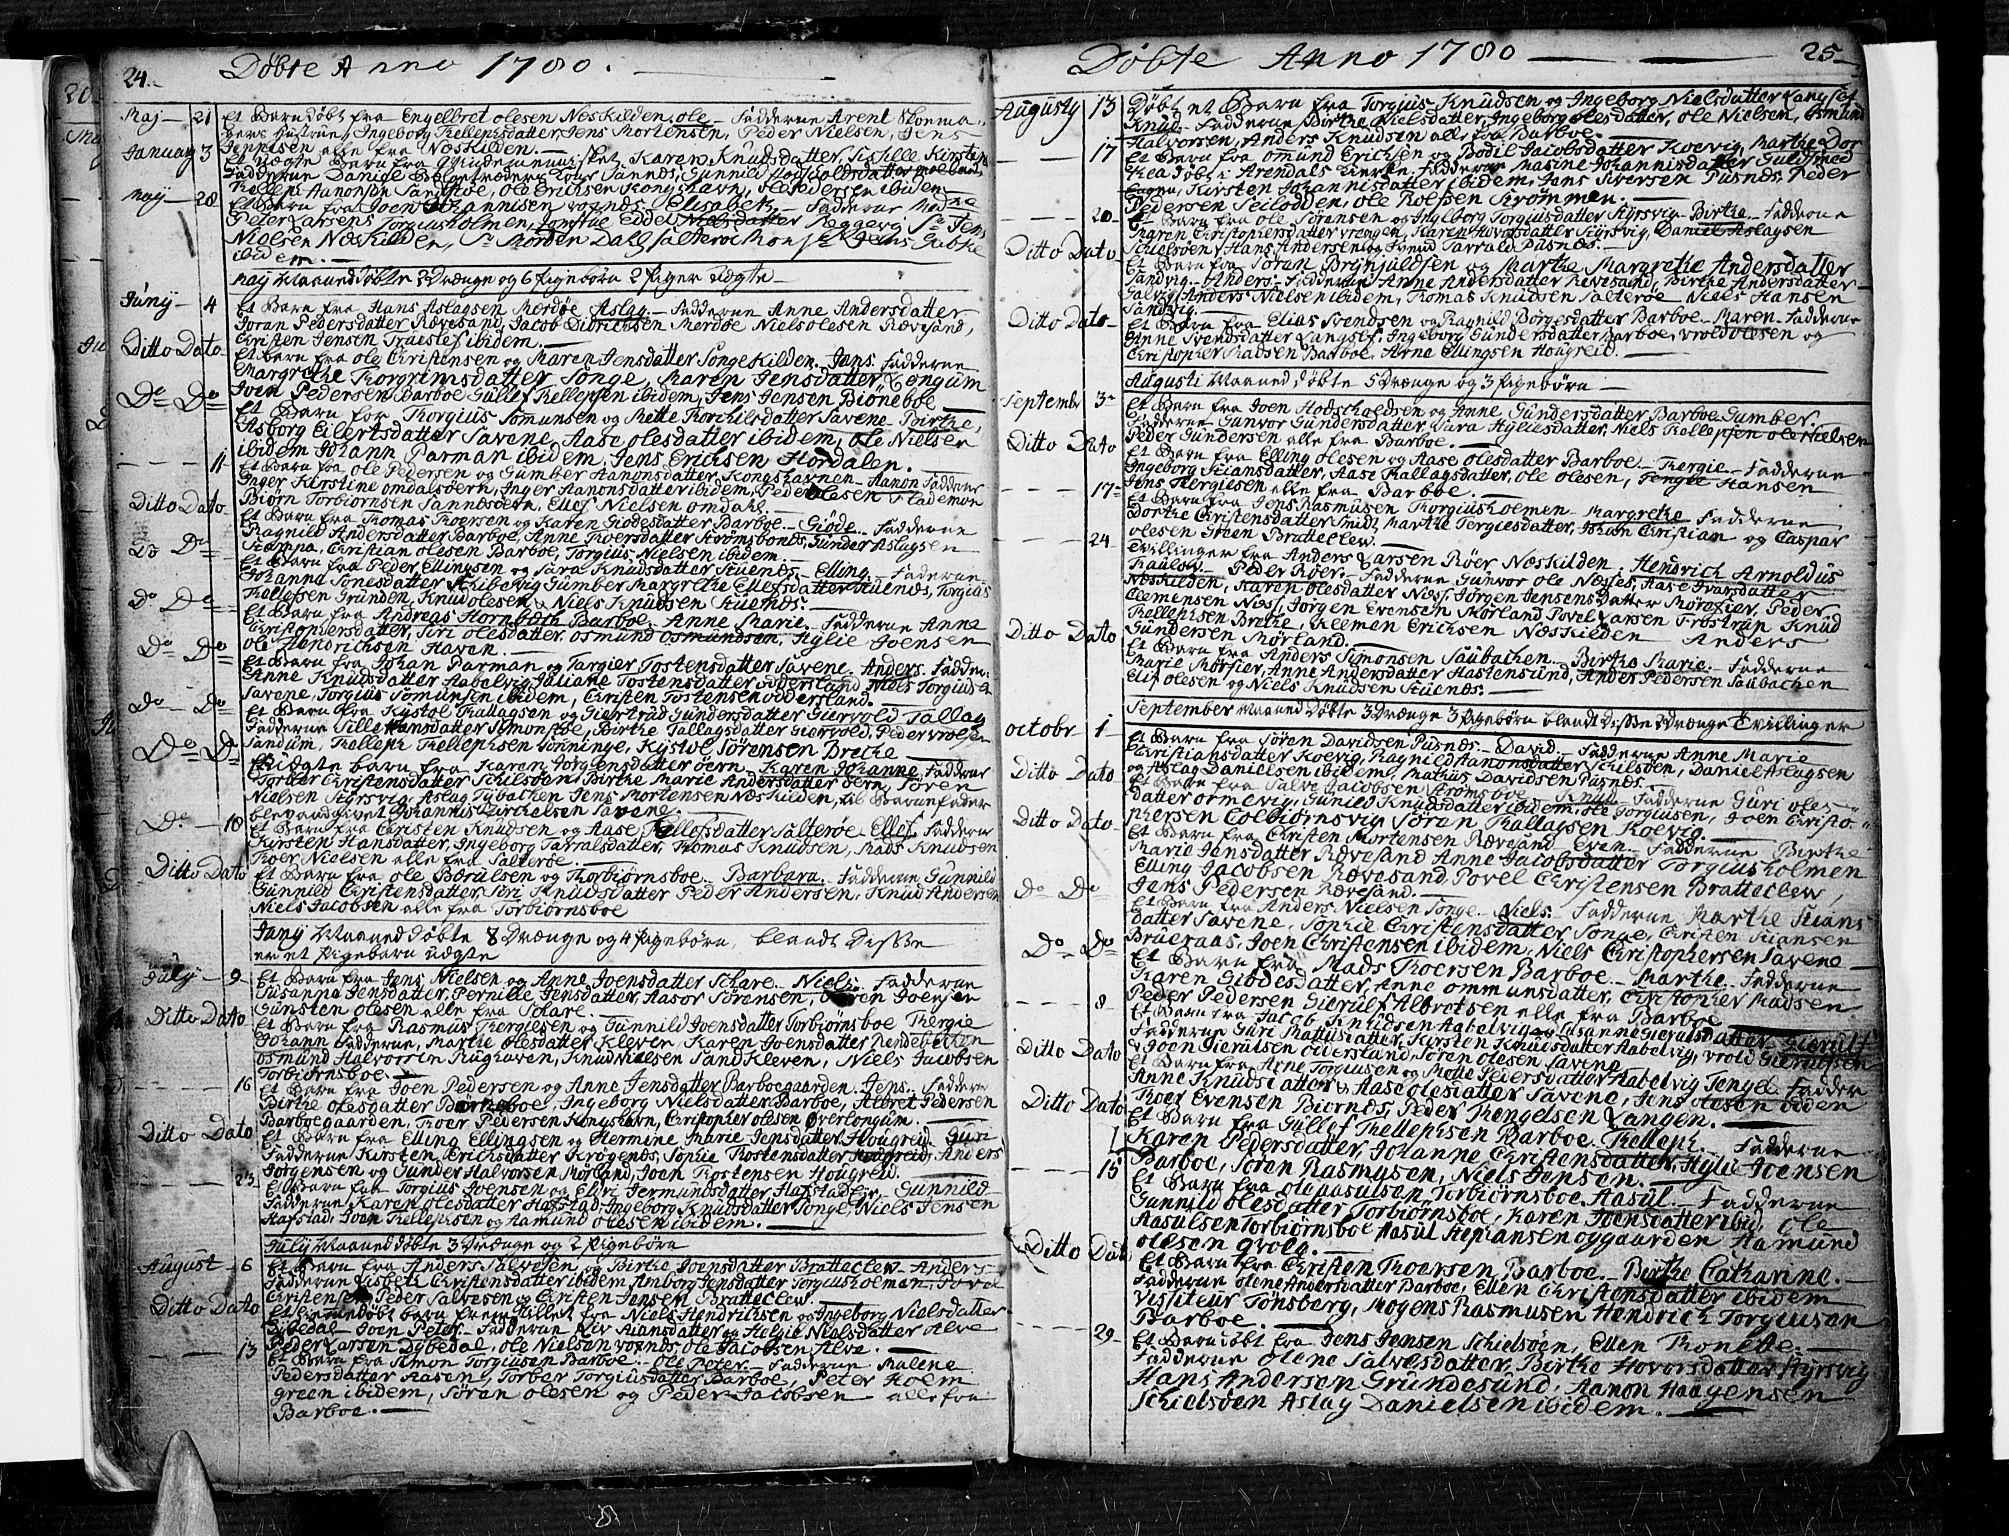 24.
Døbte Anno 1780.
Maj 21 Et Barn døbt fra Engelbret olesen Næskilden, ole - Fadderne Arent
Hustrue, Ingeborg Kellephsdatter, Jens Mortensen, Peder Nielsen, Jens
Jennisen alle fra Næskilden.
January 3 Et uægte Barn fra Karen Knudsdatter,
Fadderne Daniel
Kelleph Aanonsen Sandstøe, ole Erichsen Kongshavn, ole Pedersen ibidem
may 28 Et Barn fra Joen Johannisen vognæs Elisabeth - Faddere Madme
Peter Larsens Torgiusholmen, Jomfrue Eddel Nielsdatter Sr Jens
Nielsen Næskilden, Sr Morten Dall Salterøe Monsr Jens
ibidem.
maij Maaned døbte 2 Drænge og 6 Pigebørn 2 Piger uægte
Juny 4 Et Barn fra Hans Aslagsen Merdøe Aslag - Fadderne Anne Andersdatter
Joran Pedersdatter Rævesand, Jacob Didrichsen Merdøe Niels olesen Rævesand,
Christen Jensen ibidem.
Ditto Dato Et barn fra ole Christensen og Maren Jensdatter Songe Kilden - Jens. Fadderne
Margrethe Thorgrimsdatter Songe, Maren Jensdatter Longum
Joen Pedersen Barboe Gullef Kellepsen ibidem, Jens Jensen Biøneboe
Do Do Et Barn for Thorgius Somunsen og Mette Thorchilsdatter Savene - Birthe,
Asborg Eilertsdatter Savene, Aase olesdatter ibidem, ole Nielsen
ibidem Johann Parman ibidem, Jens Erichsen Hordalen.
11 Et Barn fra ole Pedersen og Gumber Aanonsdatter, Kongshavnen - Aanon Fadderne
Inger Kirstine omdalsøern, Inger Aanonsdatter ibidem, Peder olesen Flademoe
Biørn Torbiørnsen Sannesøern, Ellef Nielsen omdahl.
Ditto Dato Et Barn fra Thomas Thoersen og Karen Giødesdatter Barboe - Giøde - Fadderne
Ragnild Andersdatter Barboe, Anne Thoersdatter Strømsboenes, Gunder Aslagsen
Kampa, Christian olesen Barboe, Torgius Nielsen ibidem.
Do Et Barn fra Peder Ellingsen og Sara Knudsdatter Stuenes - Elling - Faderne
Johanne Tonesdatter Skibevig Gumber Margrethe Ellefsdatter Stuenes, Torgius
Tollefsen Grunden, Knud olesen & Niels Knudsen Stuenæs.
Do Do Et Barn fra Andreas Barboe - Anne Marie - Fadderne Anne
Christophersdatter, Siri olesdatter, osmund osmundsen, Hylie Joensen
ole Hendrichsen Haven.
Do Do Et Barn fra Johan Parman og Targier Tostensdatter Savene Anders. Fadder.
Anne Knudsdatter Aabelvig Juliane Tostensdatter odderslund Niels Torgiusen
Savene, Torgius Somunsen ibidem, Christen Tostensen odderslund.
Do Do Et Barn fra Kystol Tallagsen og Giertrud Gundersdatter Giervold Tallag
Fadderne Sille Hansdatter Simonstøe, Birthe Tallagsdatter Giervold, Peder vrolsen
Sandum, Kelleph Kellephsen Sønninge, Kystol Sørensen Brethe
Do Do Et uægte barn fra Karen Jørgensdatter øern, Karen Johanne Faddere
Torber Christensdatter Schilsøen, Birthe Marie Andersdatter øern, Søren
Nielsen Styrsvig, Aslag Tybachen Jens Mortensen Næskilden, til Barnefader
blev angivet Johannis Savene
Do 18 Et Barn fra Christen Knudsen og Aase Ellefsdatter Salterøe - Ellef. Fadderne
Kirsten Hansdatter, Ingeborg Tarralsdatter, Thomas Knudsen, Mads Knudsen
Thoer Nielsen alle fra Salterøe.
Ditto Dato Et Barn fra ole og Thorbiørnsboe - Barbara. Fadderne Gunnild
Gunnild Christensdatter, Siri Knudsdatter Peder Andersen, Knud Andersen
Niels Jacobsen alle fra Torbiørnsboe
Juny Maaned døbte 8 Drænge og 4 Pigebørn, blandt Disse
er et Pigebarn uægte
July 9 Et Barn fra Jens Nielsen og Anne Joensdatter Schare - Niels. Fadderne
Susanna Jensdatter, Pernille Jensdatter, Aasor Sørensen, Søren Joensen
Gunsten olesen alle fra Schare.
Ditto Dato Et Barn fra Rasmus Thergiesen og Gunnild Joensdatter Torbiørnsboe Thergie
Johann Fadderne, Marthe olesdatter Kleven Karen Joensdatter Rendebechen
osmund Halvorsen Rughaven, Knud Nielsen Sandkleven, Niels Jacobsen
Torbiørnsboe.
16 Et Barn fra Joen Pedersen og Anne Jensdatter Barboegaarden, Jens. Faddere
Birthe olesdatter Ingeborg Nielsdatter Barboe, Albret Pedersen
Barboegaarden, Thoer Pedersen Kongshavn, Christopher olesen overlongum.
Ditto Dato Et Barn fra Elling Ellingsen og Hermine Marie Jensdatter Hougreid. Guri
Fadderne Kirsten Erichsdatter Krøgenes, Sophie Thostensdatter Hougreid, Anders
Jørgensen og Gunder Halvorsen Mørland, Joen Thostensen Hougreid.
23 Et Barn fra Torgius Joensen og Eldri Jermundsdatter Hafstad - Gunnild
Fadderne Karen olesdatter Hafstad, Ingeborg Knudsdatter Songe, Niels Jensen
Hafstad, Joen Kellephsen og Aamund olesen ibidem.
July Maaned døbte 3 Drænge og 2 Pigebørn
August 6 Et Barn fra Anders Salvesen og Birthe Joensdatter Bratteclev - Anders -
Fadderne Lisbeth Christensdatter ibidem Anborg Jensdatter Torgiusholmen, Povel
Christensen Peder Salvesen og Christen Jensen Bratteclev.
Ditto Dato Et hiemmedøbt barn fremstillet fra Niels Hendrichsen og Ingeborg Nielsdatter
Dybedal - Joen Peter - Fadderne Siv Kiansdatter og Helgie Nielsdatter Alve
Peder Larsen Dybedal, ole Nielsen vognes ole Jacobsen Alve.
13 Et Barn fra Simon Torgiusen Barboe - ole Peter - Fadderne Malene
Pedersdatter Aasen, Torber Torgiusdatter Barboe, Peter Holm
green ibidem, Søren olesen og Peder Jacobsen alle fra
Barboe.
Døbte Anno 1780
25
Augusty 13 Døbt et Barn fra Torgius Knudsen og Ingeborg Nielsdatter Langsæt
Knud - Fadderne Birthe Nielsdatter, Ingeborg olesdatter, ole Nielsen, Osmund
Halvorsen, Anders Knudsen alle fra Barboe.
17 Et Barn fra omund Erichsen og Bodil Jacobsdatter Koevig, Marthe Dor
thea døbt i Arendals Kirke, Fadderne Maxine Johannisdatter Guldsmed
Kirsten Johannisdatter ibidem, Jens Siversen Pusnes, Peder
Pedersen Seilodden, ole Roefsen Strømmen.
20 Et Barn fra ole Sørensen og Hylborg Torgiusdatter Styrsvig - Birthe - Fadderne
Maren Christophersdatter vrengen, Karen Hovorsdatter Styrsvig, Daniel Aslagsen
Schielsøen, Hans Andersen og Svend Tarrald. Pusnes.
Ditto Dato Et Barn fra Søren Brynjuldsen og Marthe Margrethe Andersdatter
Sandvig - Anders - Fadderne Anne Andersdatter Revesand, Birthe Andersdatter
Galvig, Anders Nielsen ibidem, Thomas Knudsen Salterøe Niels Hansen
Sandvig.
Ditto Dato Et Barn fra Elias Svendsen og Ragnild Børgesdatter Barboe - Maren - Fadderne
Anne Svendsdatter Langsæt, Ingeborg Gundersdatter Barboe, vrold olesen og
Christopher Madsen Barboe, Arne Ellingsen Hougreid.
Augusti Maaned døbte 5 Drænge og 3 Pigebørn
September 3 Et Barn fra Joen Hodscholdsen og Anne Gundersdatter Barboe Gumber.
Fadderne Gunvor Gundersdatter, Sara Hyliusdatter, Niels Kellephsen ole Nielsen
Peder Gundersen alle fra Barboe.
Ditto Dato Et Barn fra Elling olesen og Aase olesdatter Barboe - Thergie - Fadderne
Ingeborg Kiansdatter, Aase Tallagsdatter, ole olesen, Tengle Hansen
Jens Thergiesen alle fra Barboe.
17 Et Barn fra Jens Rasmusen Thorgiusholmen - Margrethe Fadderne
Dorthe Christensdatter Smidt, Marthe Tergiesdatter, Johan Christian og Caspar
olesen Green Bratteclev.
24 Tvillinger fra Anders Larsen Røer Næskilden: Hendrich Arnoldus
Peder Røer. Fadderne Gunvor ole Næsses, Aase Ivarsdatter
Næskilden, Karen olesdatter Næss, Jørgen Jensens Datter Peder
Clemensen Næss, Jørgen Evensen Mørland Povel Larsen Frostrup Knud
Kellephsen Brethe, Kleemen Erichsen Næskilden Anders
Gundersen Mørland.
Ditto Dato Et Barn fra Anders Simonsen Saubachen - Birthe Marie. Fadderne
Marie Anne Andersdatter Hastensund, Anders Pedersen Saubachen
Elif olesen og Niels Knudsen Stuenæs.
September Maaned døbte 3 Drænge 3 Pigebørn blandt Disse 2 Drænge Tvillinger
octobr 1 Et Barn fra Søren Davidsen Pusnæs - David - Fadderne Anne Marie
Christiansdatter Koevig, Ragnild Aanonsdatter Schilsøen, Daniel Aslagsen
og Aslag Danielsen ibidem, Mathis Davidsen Pusnes.
Ditto Dato Et Barn fra Salve Jacobsen Strømsboe - Knud - Fadderne Guri oles-
datter ormevig, Gunild Knudsdatter ibidem, ole Torgiusen, Joen Christo-
phersen Colbiørnsvig Søren Tallagsen Koevig.
Ditto Dato Et Barn fra Christen Mortensen Rævesand Even - Fadderne Birthe
Marie Jensdatter Rævesand Anne Jacobsdatter Torgiusholmen
Elling Jacobsen Rævesand, Povel Christensen Bratteclev,
Jens Pedersen Rævesand.
Do Do Et Barn fra Anders Nielsen Songe - Niels. Fadderne Marthe Kians
datter Savene, Sophie Christensdatter Songe, Christen Kiansen
Brueraas, Joen Christensen ibidem, Niels Christophersen Savene
Do Do Et Barn fra Mads Thoersen Barboe - Marthe - Fadderne
Karen Giødesdatter, Anne ommunsdatter, Christopher Madsen
Peder Pedersen Gierulf Albretsen alle fra Barboe
8 Et Barn fra Jacob Knudsen Aabelvig og Susanne Gierulsdatter - Gierulf
Fadderne Guri Mathisdatter, Kirsten Knudsdatter Aabelvig, vrold Gierulfsen
& Joen Gierulsen oiderslund, Søren olesen Savene.
Ditto Dato Et Barn fra Arne Torgiusen og Mette Pedersdatter Aabelvig Tengel Fadder
Anne Knudsdatter & Aase olesdatter Savene, Jens olesen ibidem
Thoer Evensen Biørnes, Peder Thengelsen Langen.
Ditto Dato Et Barn fra Gullef Kellephsen Barboe. Kelleph. Fadderne
Karen Pedersdatter, Johanne Christensdatter, Hylie Joensen
Barboe, Søren Rasmusen, Niels Jensen.
15 Et Barn fra ole Aasulsen Torbiørnsboe, Aasul. Fadderne
Gunnild olesdatter Torbiørnsboe, Karen Joensdatter ibid. ole
Aasulsen Torbiørnsboe Aasul Stephansen oygaarden Aamund
olesen
Ditto Dato Et Barn fra Christen Thoersen Barboe - Birthe Catharine. -
Fadderne olene Andersdatter Barboe, Ellen Christensdatter ibidem
Visiteur Tønsberg, Mogens Rasmusen, Hendrich Torgiusen
Barboe.
29 Et Barn døbt fra Jens Jensen Schielsøen, Ellen Thonette -
Fadderne olene Salvesdatter, Birthe Hovorsdatter Styrsvig
Hans Andersen Grundesund, Aanon Haagensen
Schielsøen Aslag Danielsen ibidem.